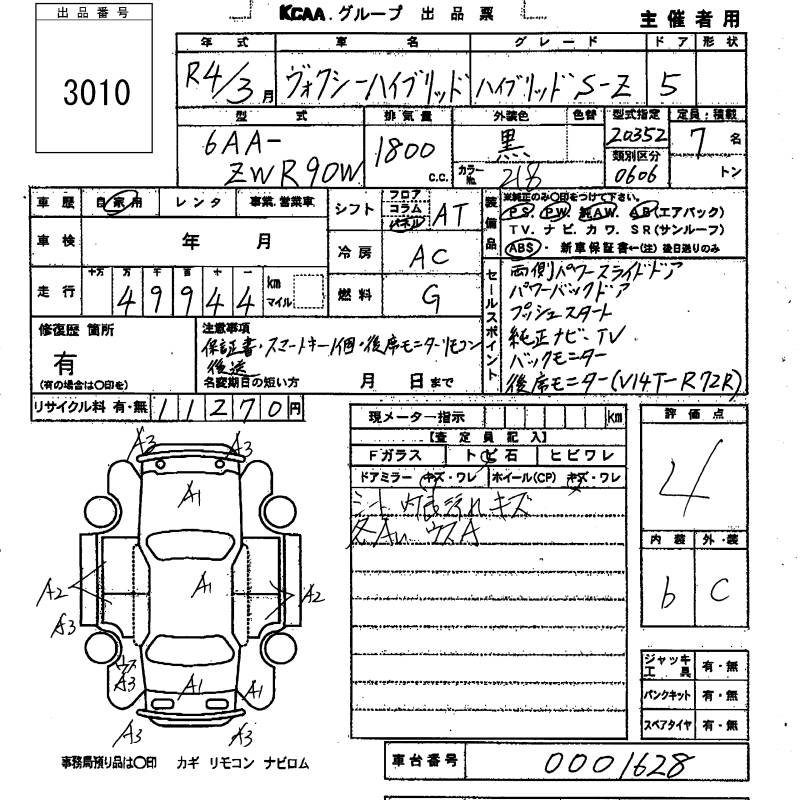 出品番号
3010
KCAA.グループ 出品票
主催者用
年式 車名 グレード ドア 形状
R4/3月 ヴォクシーハイブリッド ハイブリッド S-Z 5
型式 排気量 外装色 色替 型式指定 定員:積載
6AA-
ZWR90W 1800 c.c. 黒 20352 7名
カラーNo. 218 類別区分 0606 トン
車歴 自家用 レンタ 事業.営業車
シフト フロア コラム パネル AT
装備品 ※純正のみ〇印をつけて下さい。
PS. PW. 純AW. AB(エアバック)
TV. ナビ. カワ. SR(サンルーフ)
ABS・ 新車保証書←(注)後日送りのみ
車検 年 月
冷房 AC
走行 十万 万 千 百 十 一 km マイル
49944
燃料 G
セールスポイント
両側パワースライドドア
パワーバックドア
プッシュスタート
純正ナビ・TV
バックモニター
後席モニター(V14T-R72R)
修復歴 箇所
有
(有の場合は〇印を)
注意事項
保証書・スマートキー1個・後席モニターリモコン
後送
名変期日の短い方 月 日まで
リサイクル料 有・無 11270円
現メーター指示 km
【査定員記入】
Fガラス トビ石 ヒビワレ
ドアミラー キズ・ワレ ホイール(CP) キズ・ワレ
シート 灯 汚れ キズ
ウスA
評価点
4
内装 外装
b C
A3 A3
A1
A1
A2 A2
A3
A3
A1 A1
A3 A3
ジャッキ工具 有・無
パンクキット 有・無
スペアタイヤ 有・無
事務局預り品は〇印 カギ リモコン ナビロム
車台番号 0001628